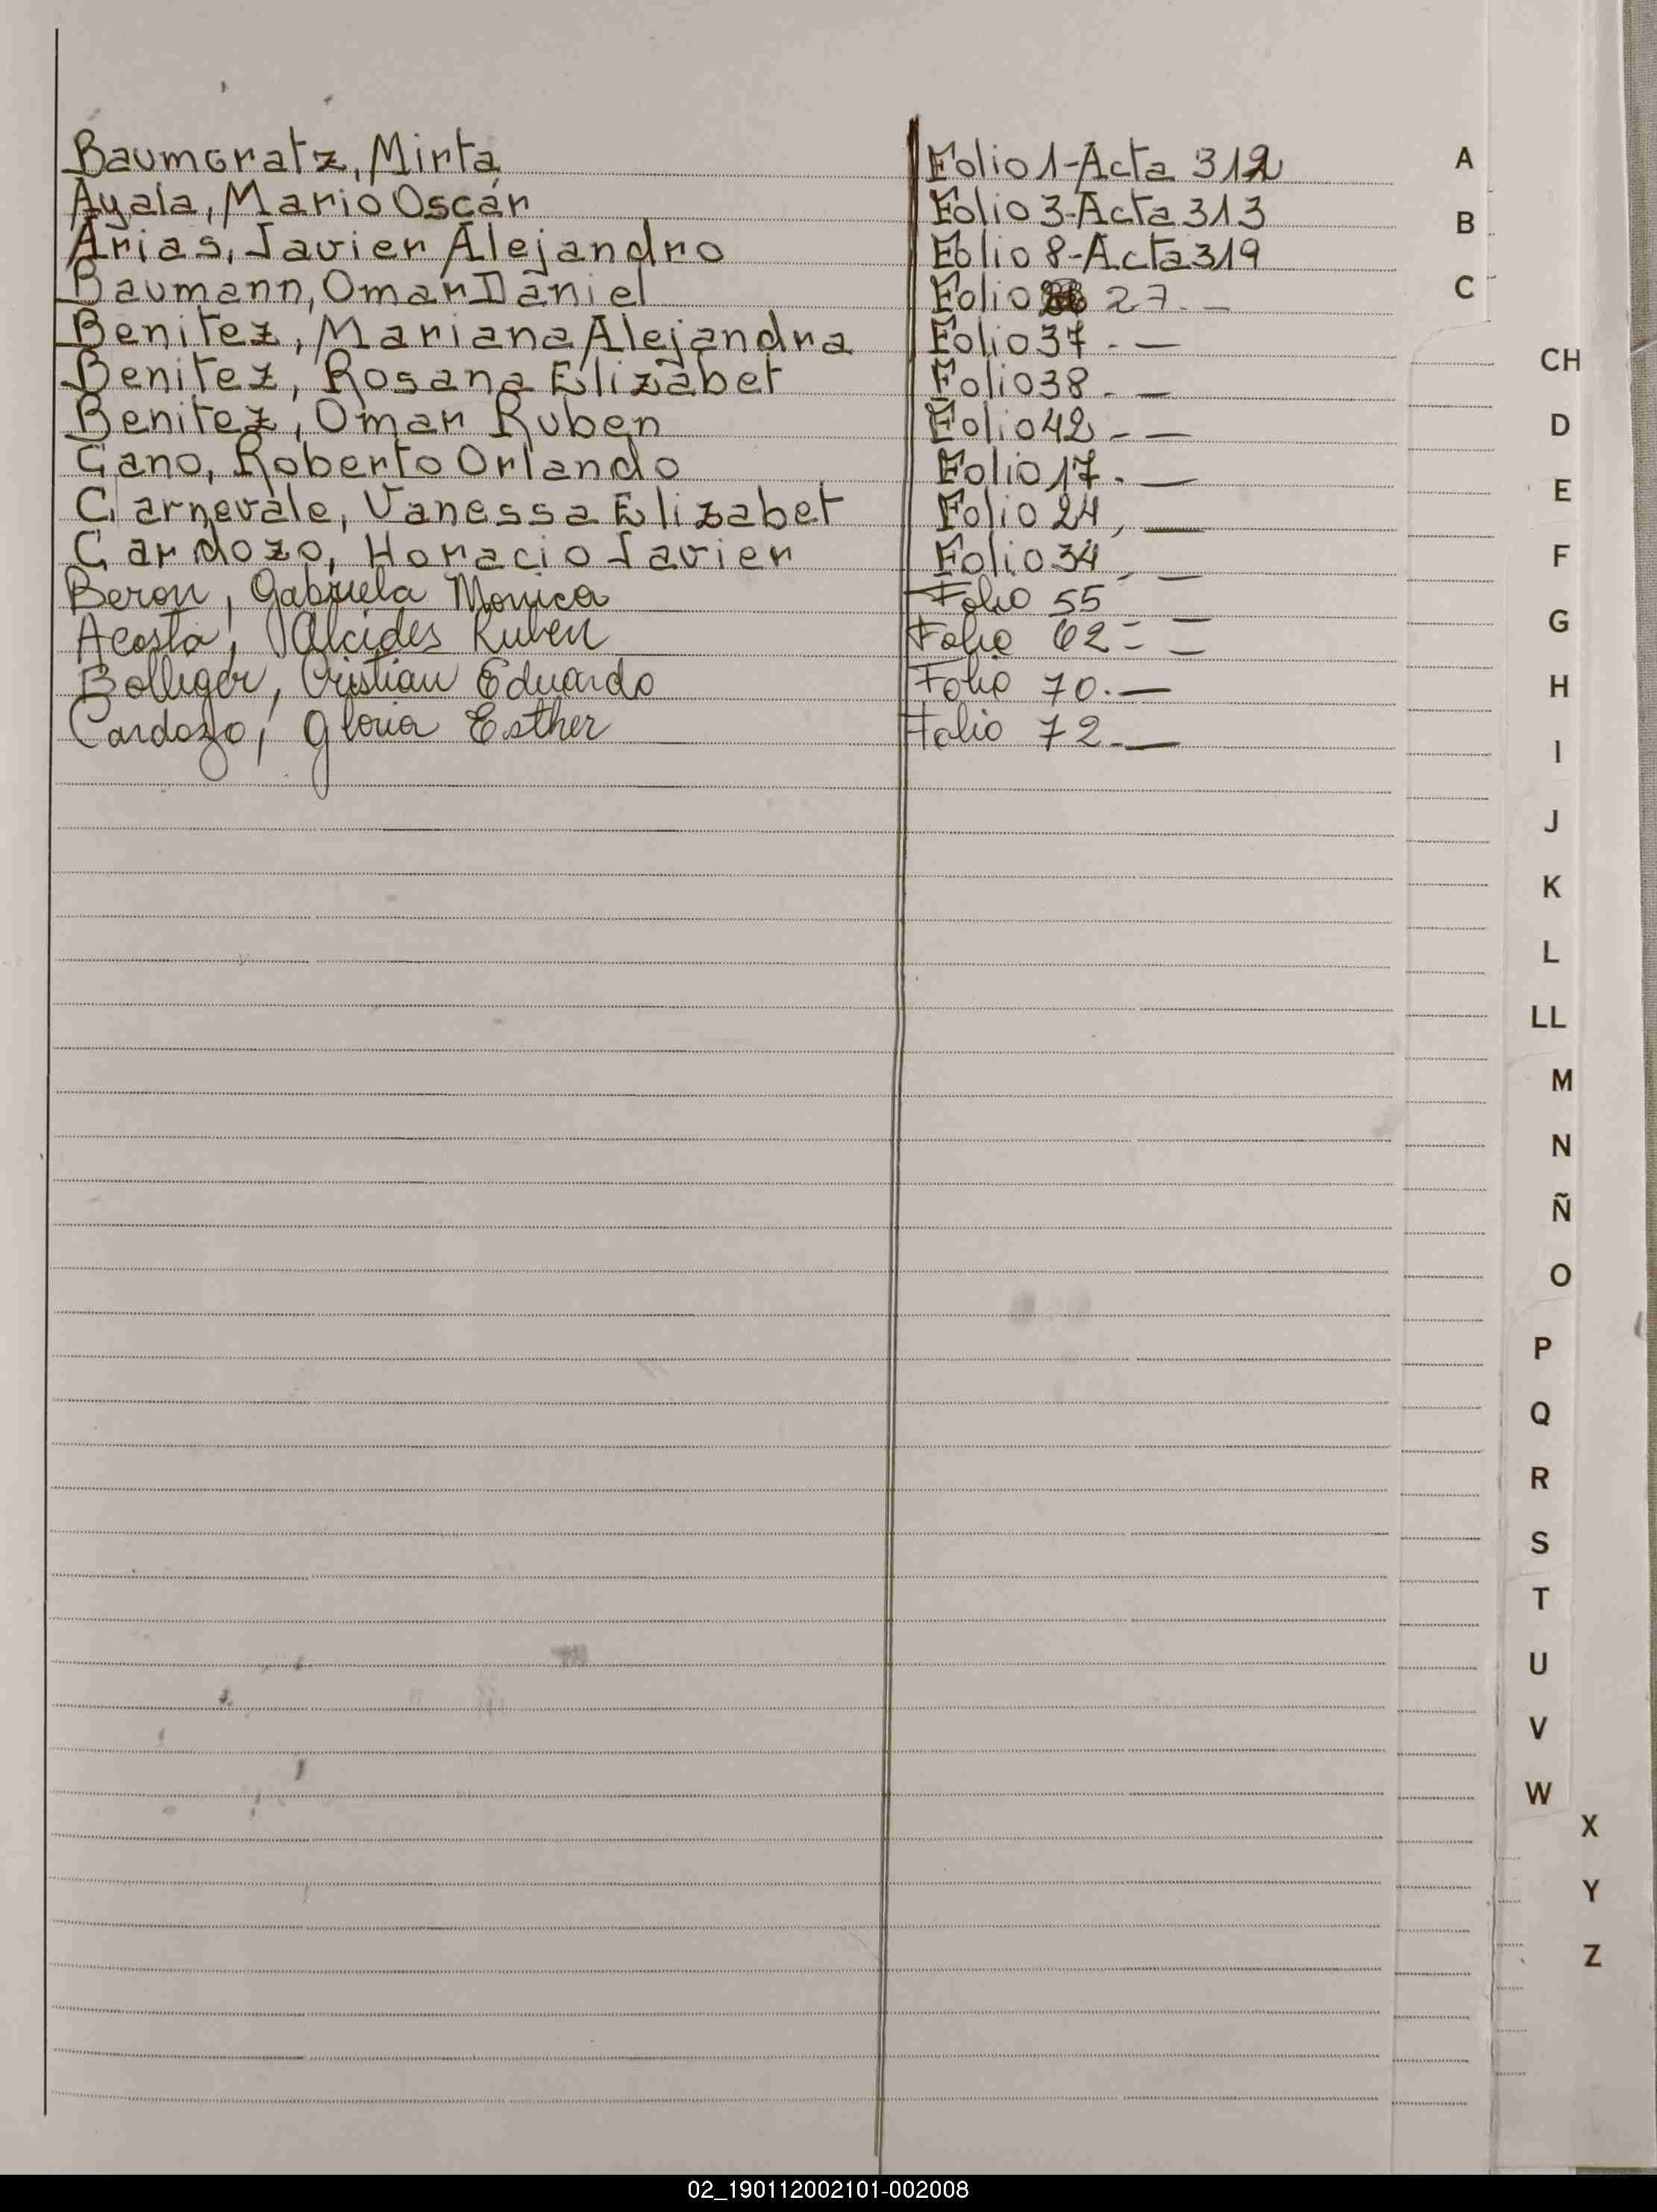 Baumgratz, Mirta Folio 1-Acta 312
Ayala, Mario Oscar Folio 3-Acta 313
Arias, Javier Alejandro Folio 8-Acta 319
Baumann, Omar Daniel Folio 27.-
Benitez, Mariana Alejandra Folio 37.-
Benitez, Rosana Elizabet Folio 38.-
Benitez, Omar Ruben Folio 42.-
Cano, Roberto Orlando Folio 17.-
Carnevale, Vanessa Elizabet Folio 24,-
Cardozo, Horacio Javier Folio 34,-
Beron, Gabriela Monica Folio 55
Acosta, Alcides Ruben Folio 62
Bolliger, Cristian Eduardo Folio 70.-
Cardozo, Gloria Esther Folio 72.-
A
B
C
CH
D
E
F
G
H
I
J
K
L
LL
M
N
Ñ
O
P
Q
R
S
T
U
V
W
X
Y
Z
02_190112002101-002008